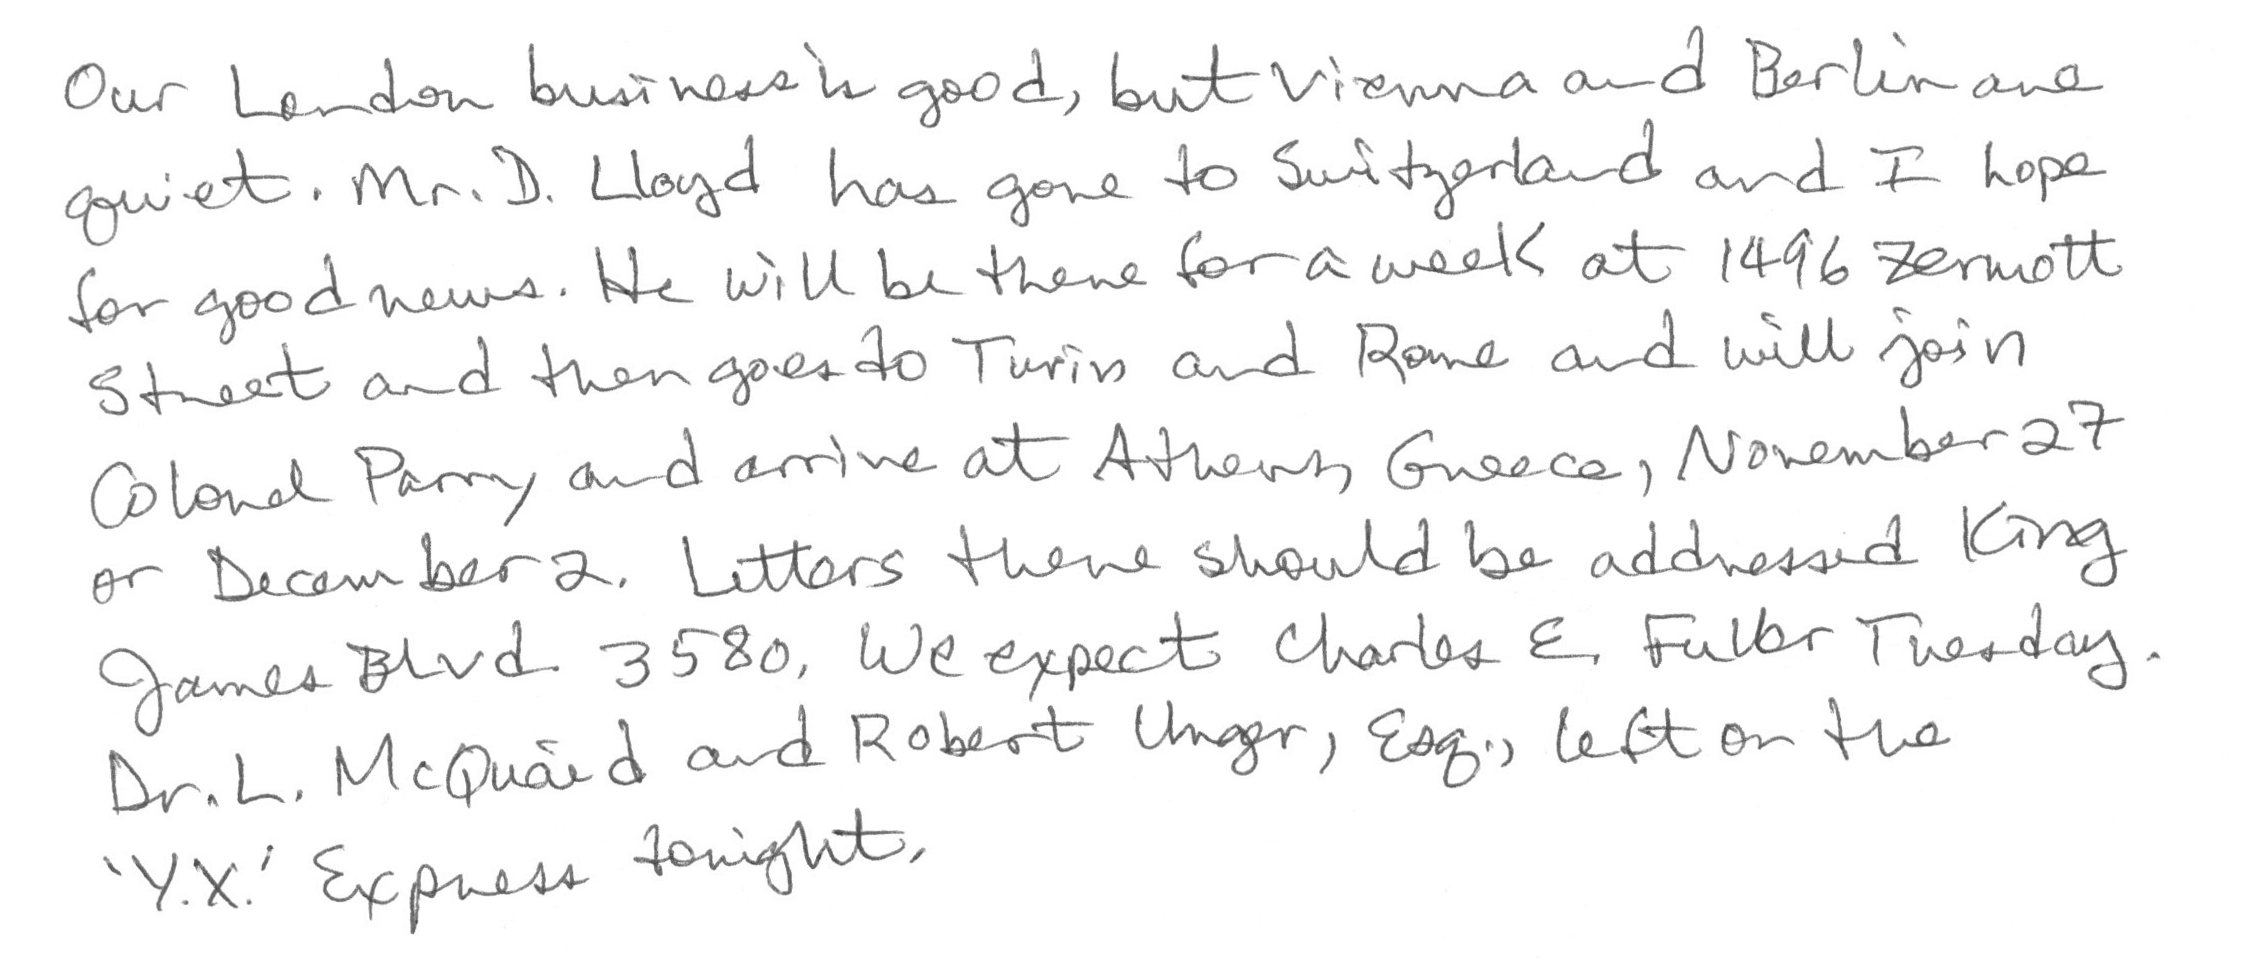 Our London business is good, but Vienna and Berlin are
quiet. Mr. D. Lloyd has gone to Switzerland and I hope
for good news. He will be there for a week at 1496 Zermott
Street and then goes to Turin and Rome and will join
Colonel Parry and arrive at Athens, Greece, November 27
or December 2. Letters there should be addressed King
James Blvd 3580. We expect Charles E. Fuller Tuesday.
Dr. L. McQuaid and Robert Unger, Esq., left on the
'Y.X.' Express tonight.